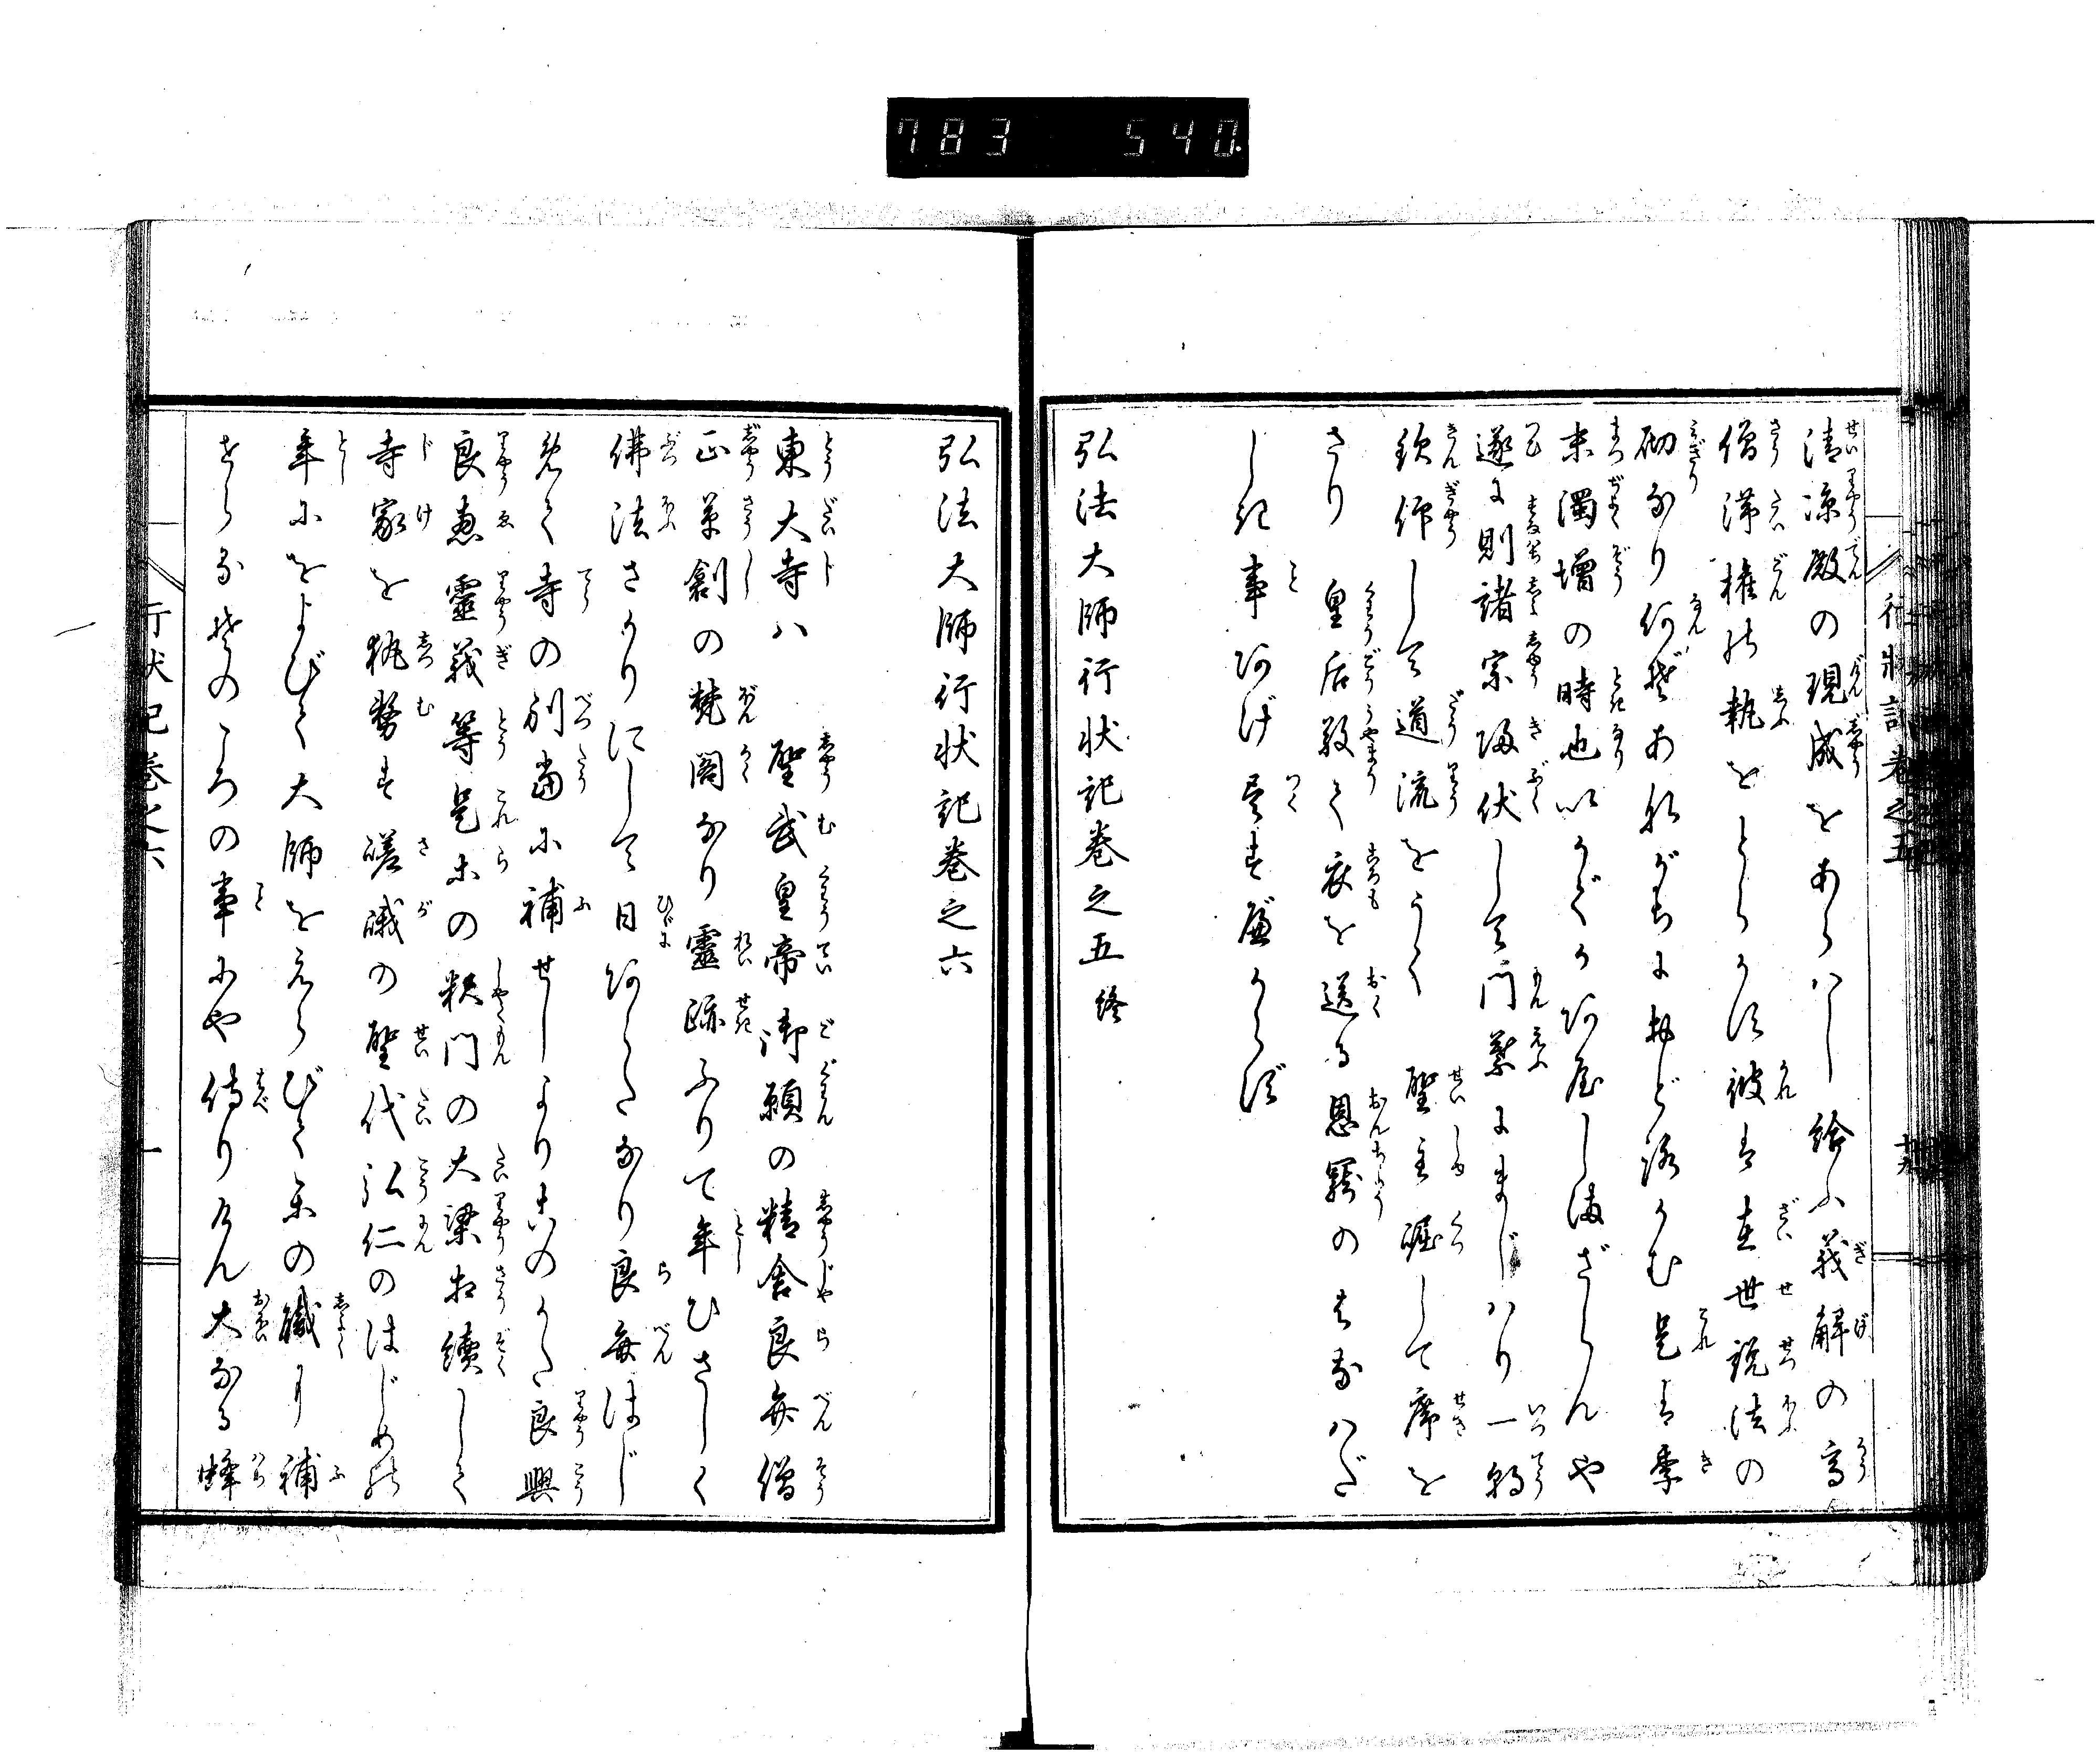 783 540
清凉殿の現成をあらハし給ふ義解の高
僧滞権の執をとらかす彼は在世説法の
砌なり何ぞあながちにほどけかむ是は季
末濁増の時也いかでかあやしまざらんや
遂に則諸宗帰伏して門葉にまじハり一朝
欽仰して道流をうく 聖主
して席を
さり 皇后敬て衣を送る恩
のはなハだ
しき事あげ尽すべからず
弘法大師行状記巻之五終
行状記巻之五
弘法大師行状記巻之六
東大寺ハ 聖武皇帝御願の精舎良弁僧
正草創の梵閣なり霊跡ふりて年ひさしく
佛法さかりにして日あらたなり良弁はじ
めて寺の別当に補せしよりこのかた良興
良恵霊義等是等の釈門の大梁相続して
寺家を執務す嵯峨の聖代弘仁のはじめの
年におよびて大師をえらびて等の職に補
せらるそのころの事にや侍りけん大なる蜂
行状記巻之六
一